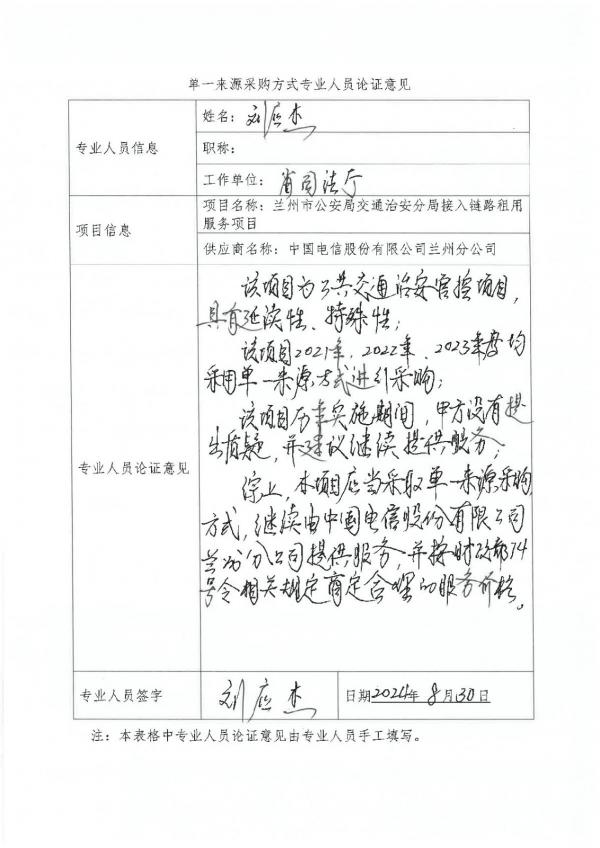 单一来源采购方式专业人员论证意见
专业人员信息
姓名：刘应杰
职称：
工作单位：省司法厅
项目信息
项目名称：兰州市公安局交通治安分局接入链路租用
服务项目
供应商名称：中国电信股份有限公司兰州分公司
专业人员论证意见
该项目为公共交通治安管控项目，
具有延续性、特殊性；
该项目2021年、2022年、2023年度均
采用单一来源方式进行采购；
该项目历年实施期间，甲方没有提
出质疑，并建议继续提供服务；
综上，本项目应当采取单一来源采购
方式，继续由中国电信股份有限公司
兰州分公司提供服务，并按财政部74
号令相关规定商定合理的服务价格。
专业人员签字
刘应杰
日期2024年8月30日
注：本表格中专业人员论证意见由专业人员手工填写。